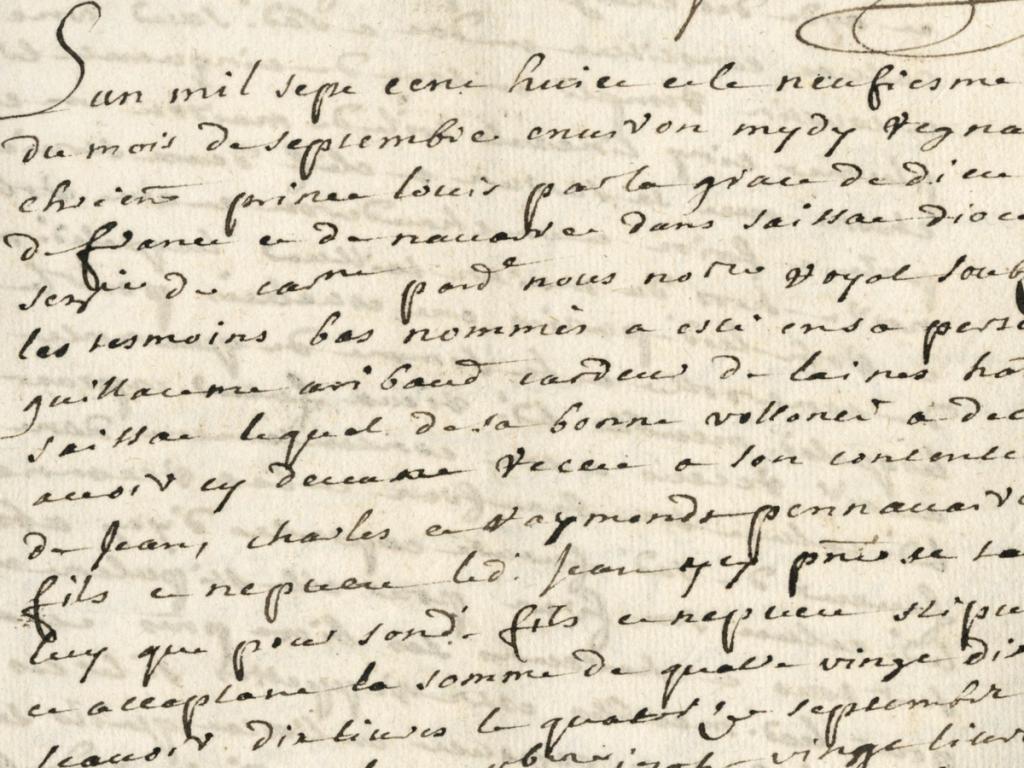 Lan mil sept cent huict et le neufiesme
du mois de septembre environ mydy regna
chretien prince louis par la grace de dieu
de france et de navarre dans saissac dioce
de par d nous nore royal soub
les tesmoins bas nommes a esté en sa perso
guillaume aribaud cardeur de laines ha
saissac lequel de sa bonne vollonté a dec
avoir cy devant receu a son contente
de Jean, charles et Raymonds pennavaire
fils et nepveu led. Jean icy pnt se ta
luy que pour sond. fils et nepveu stipu
et acceptant la somme de quatre vingt dix
scavoir dix livres le quatorze septembre
vingt livre